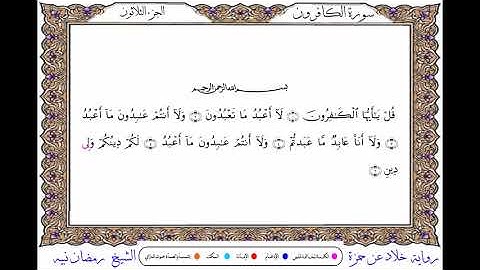 سورة الكافرون
الجزء الثلاثون
بسم الله الرحمن الرحيم
قُلْ يَٰٓأَيُّهَا ٱلْكَٰفِرُونَ ۝ لَآ أَعْبُدُ مَا تَعْبُدُونَ ۝ وَلَآ أَنتُمْ عَٰبِدُونَ مَآ أَعْبُدُ
۝ وَلَآ أَنَا۠ عَابِدٌ مَّا عَبَدتُّمْ ۝ وَلَآ أَنتُمْ عَٰبِدُونَ مَآ أَعْبُدُ ۝ لَكُمْ دِينُكُمْ وَلِى
دِينِ ۝
رواية خلاد عن حمزة
الشيخ رمضان نبيه